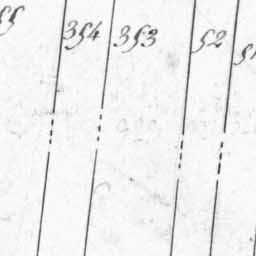 354 353 52